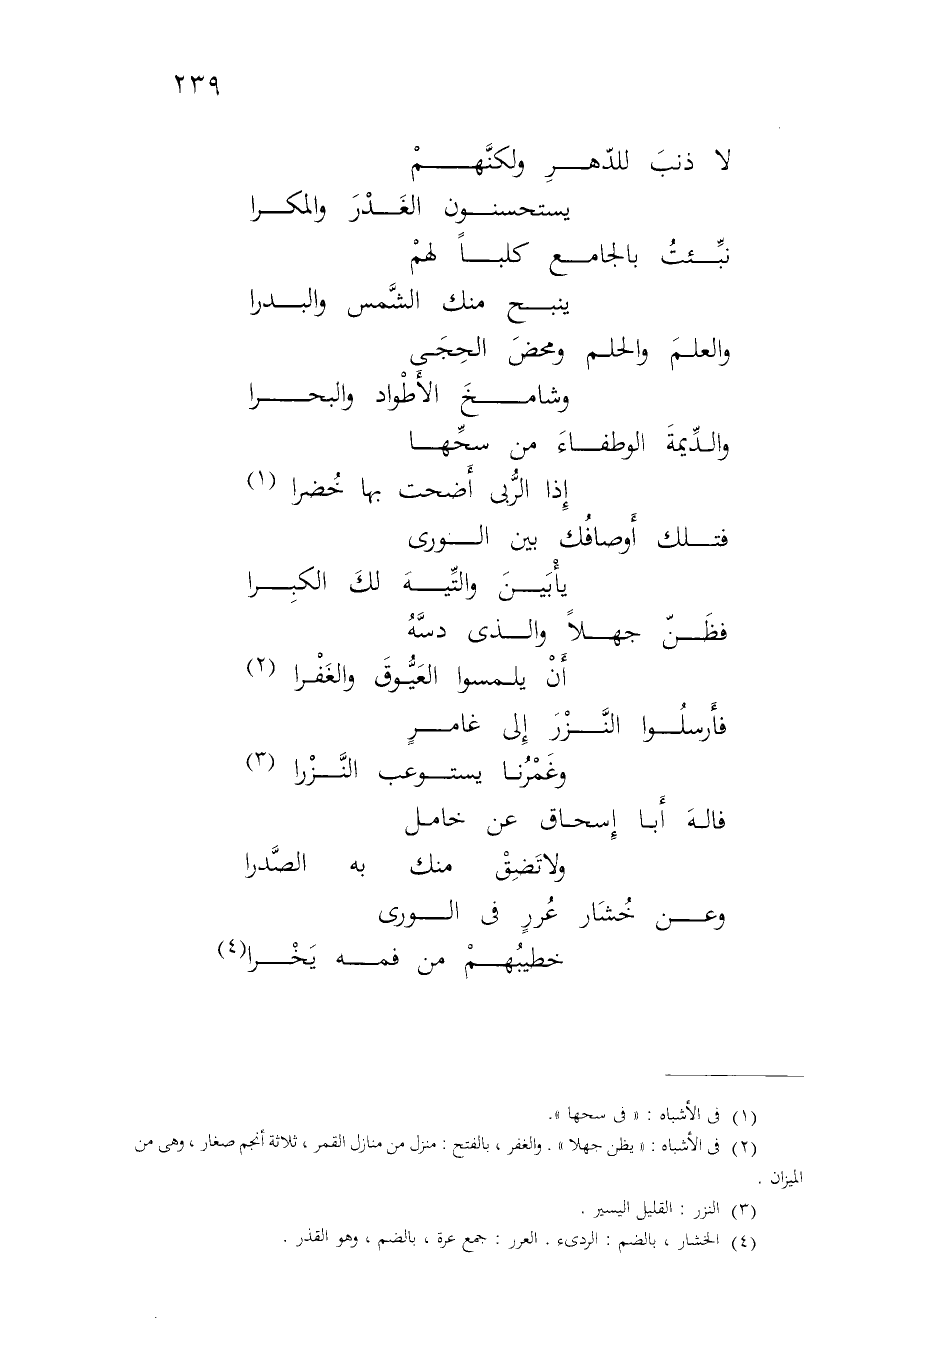 ٢٣٩
لا ذنبَ للدّهرِ ولكنَّهمْ
يستحسنون الغَدْرَ والمكرا
نبِّئتُ بالجامع كلباً لهمْ
ينبح منك الشَّمس والبدرا
والعلمَ والحلم ومحضَ الحِجَى
وشامخَ الأَطْواد والبحرا
والدِّيمةَ الوطفاءَ من سحِّها
إِذا الرُّبى أَضحت بها خُضرا (١)
فتلك أَوصافُك بين الورى
يأْبَينَ والتِّيهَ لكَ الكِبرا
فظَنّ جهلاً والذى دسَّهُ
أَنْ يلمسوا العَيُّوقَ والغَفْرا (٢)
فأَرسلُوا النَّزْرَ إِلى غامرٍ
وغَمْرُنا يستوعب النَّزْرا (٣)
فالهَ أَبا إِسحاق عن خامل
ولاتَضِقْ منك به الصَّدرا
وعن خُشَار عُررٍ فى الورى
خطيبُهمْ من فمه يَخْرا(٤)
(١) فى الأشباه : « فى سحها ».
(٢) فى الأشباه : « يظن جهلا » . والغفر ، بالفتح : منزل من منازل القمر ، ثلاثة أنجم صغار ، وهى من
الميزان .
(٣) النزر : القليل اليسير .
(٤) الخشار ، بالضم : الردىء . العرر : جمع عرة ، بالضم ، وهو القذر .